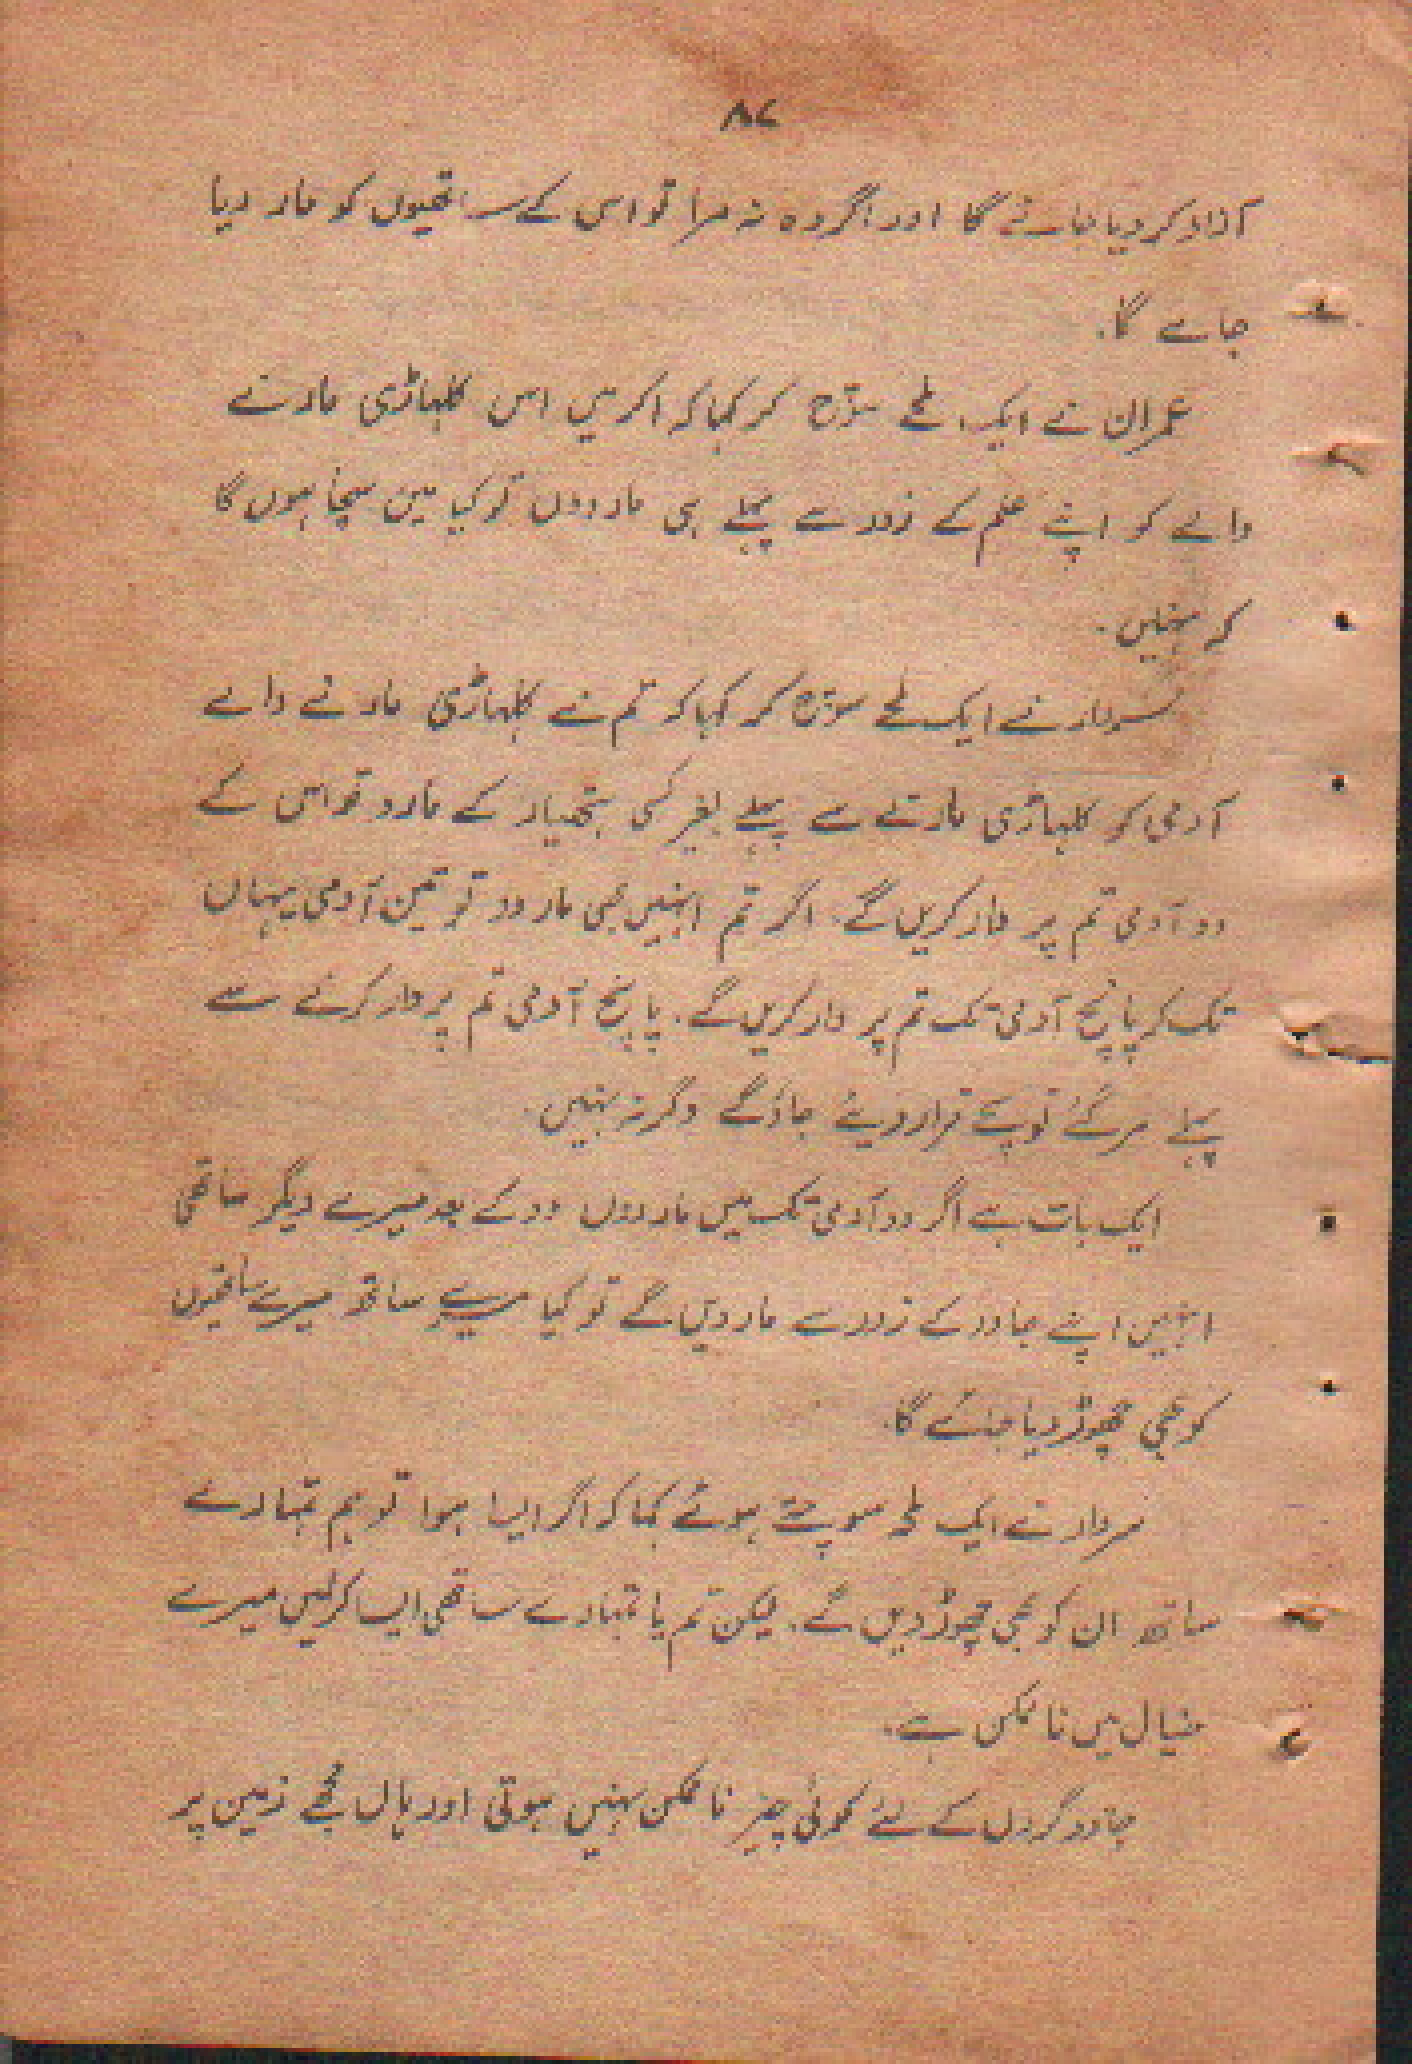 ۸۷
آزاد کر دیا جائے گا اور اگر وہ نہ مرا تو اس کے ساتھیوں کو مار دیا
جائے گا۔
عمران نے ایک لمحے سوچ کر کہا کہ اگر میں اس کلہاڑی مارنے
والے کو اپنے علم کے زور سے پہلے ہی مار دوں تو کیا میں سچا ہوں گا
کہ نہیں۔
سردار نے ایک لمحے سوچ کر کہا کہ تم نے کلہاڑی مارنے والے
آدمی کو کلہاڑی مارنے سے پہلے بغیر کسی ہتھیار کے مار دو تو اس کے
دو آدمی تم پر وار کریں گے۔ اگر تم انہیں بھی مار دو تو تین آدمی یہاں
تک کہ پانچ آدمی تک تم پر وار کریں گے۔ پانچ آدمی تم پر وار کرنے سے
پہلے مر گئے تو سچے قرار دیئے جاؤ گے وگرنہ نہیں۔
ایک بات ہے اگر دو آدمی تک میں مار دوں دو کے بعد میرے دیگر ساتھی
انہیں اپنے جادو کے زور سے مار دیں گے تو کیا میرے ساتھ میرے ساتھیوں
کو بھی چھوڑ دیا جائے گا۔
سردار نے ایک لمحے سوچتے ہوئے کہا کہ اگر ایسا ہوا تو ہم تمہارے
ساتھ ان کو بھی چھوڑ دیں گے۔ لیکن تم یا تمہارے ساتھی ایسا کر لیں میرے
خیال میں ناممکن ہے۔
جادوگروں کے لئے کوئی چیز ناممکن نہیں ہوتی اور ہاں مجھے زمین پر